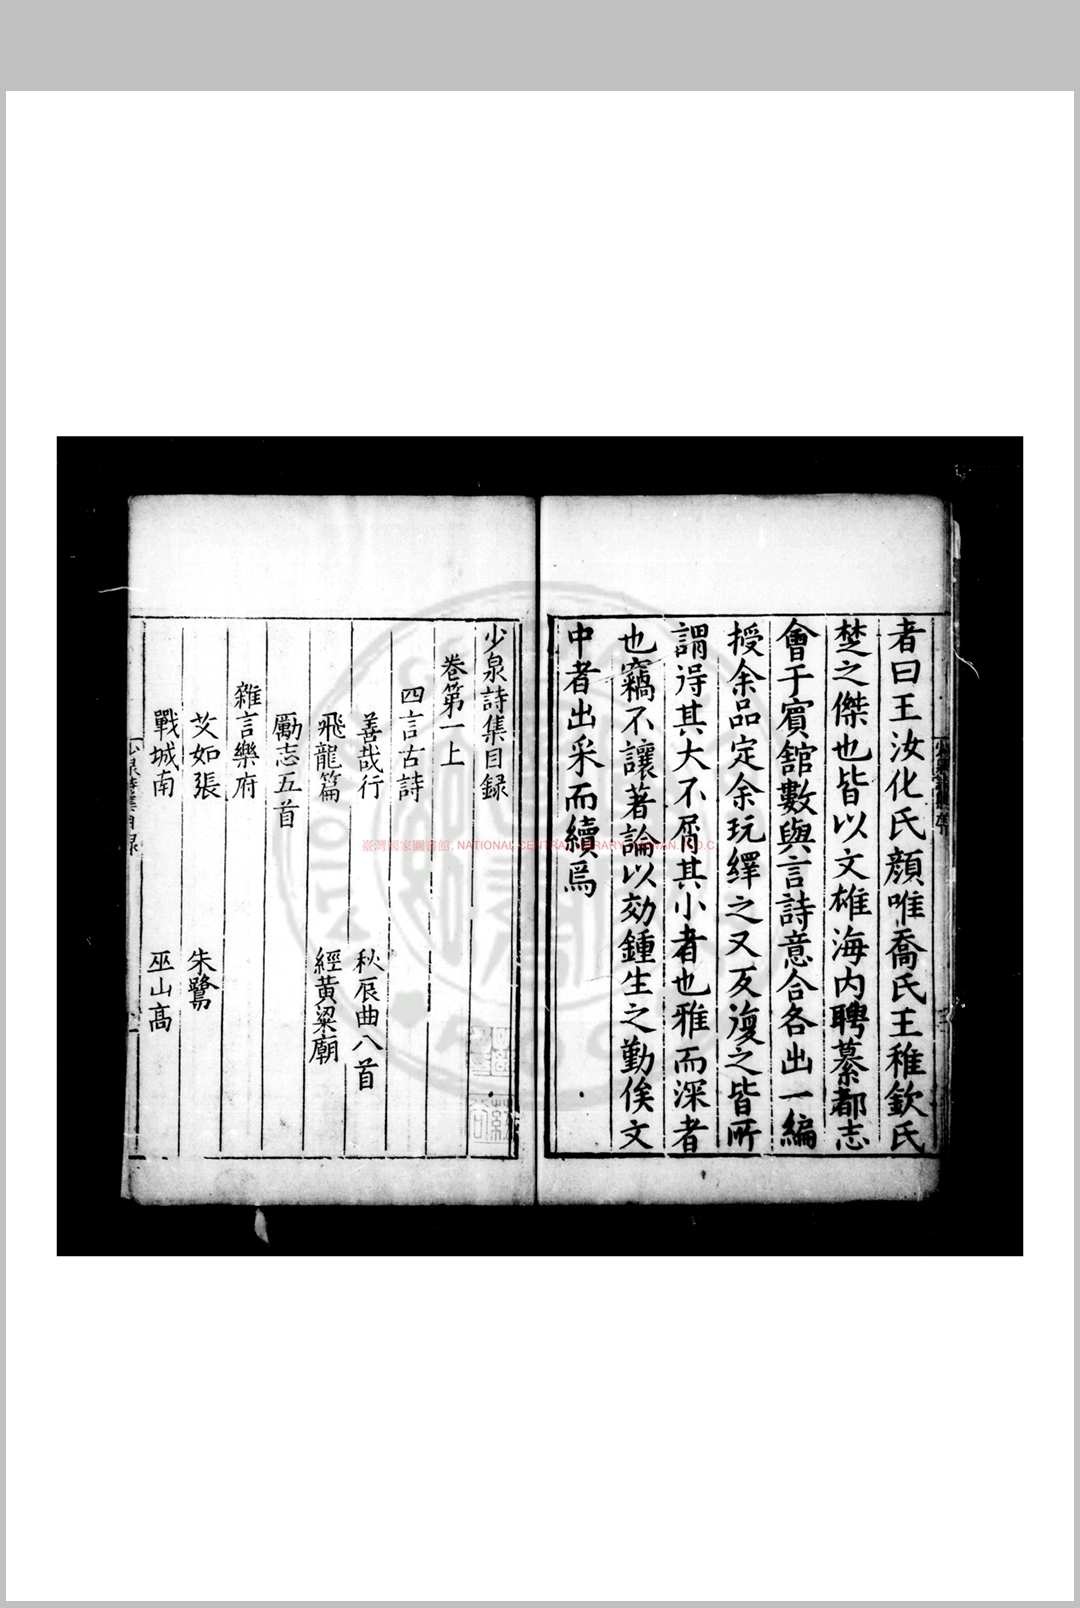 者曰王汝化氏顔唯喬氏王稚欽氏
楚之傑也皆以文雄海内聘纂都志
會于賓舘數與言詩意合各出一編
授余品定余玩繹之又反復之皆所
謂得其大不屑其小者也雅而深者
也竊不讓著論以効鍾生之勤俟文
中者出采而續焉
少泉詩集目録
卷第一上
四言古詩
善哉行 秋辰曲八首
飛龍篇 經黄粱廟
勵志五首
雜言樂府
艾如張 朱鷺
戰城南 巫山高
少泉詩集目録
臺灣國家圖書館, NATIONAL CENTRAL LIBRARY, TAIWAN, R.O.C.